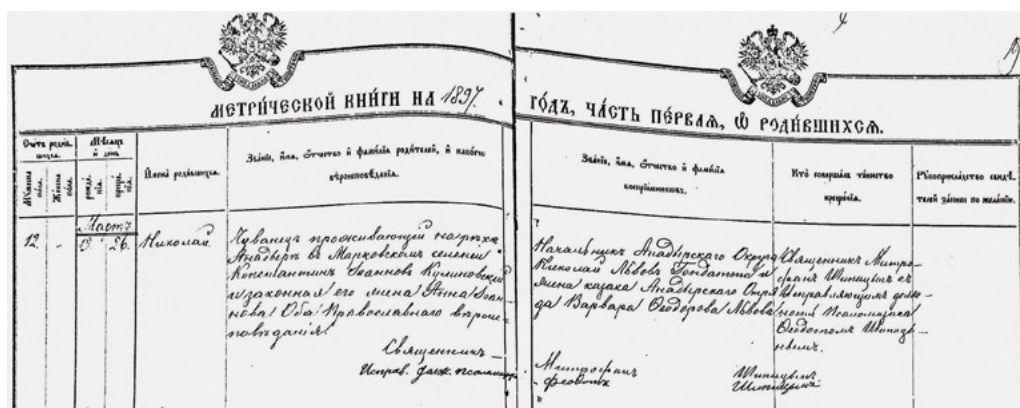 МЕТРИ́ЧЕСКОЙ КНИ́ГИ НА 1897.
ГО́ДЪ, ЧА́СТЬ ПЕ́РВАЯ, Ѽ РОДИ́ВШИХСЯ.
Счетъ родив-
шихся.
Мѣсяцъ
и день
Мужеска
пола.
Женска
пола.
рожде-
нія.
креще-
нія.
Имена родившихся.
Званіе, имя, отчество и фамилія родителей, и какого
вѣроисповѣданія.
Званіе, имя, отчество и фамилія
воспріемниковъ.
Кто совершалъ таинство
крещенія.
Рукоприкладство свидѣ-
телей записи по желанію.
Мартъ
12. - 13 26. Николай
Чуванецъ проживающій на рѣкѣ
Анадырь въ Марковскомъ селеніи
Константинъ Іоанновъ Кулиновскій
и законная его жена Анна Іоан-
нова. Оба Православнаго вѣроис-
повѣданія.
Священникъ
Исправ. долж. псаломщ.
Начальникъ Анадырскаго Округа
Николай Львовъ Гондатти и
жена казака Анадырскаго Отря
да Варвара Ѳеодорова Львова
Митрофанъ Шипицынъ
Ѳеодотъ Шипицынъ
Священникъ Митро-
фанъ Шипицынъ съ
Исправляющимъ долж-
ность Псаломщика
Ѳеодотомъ Шипицы-
нымъ.